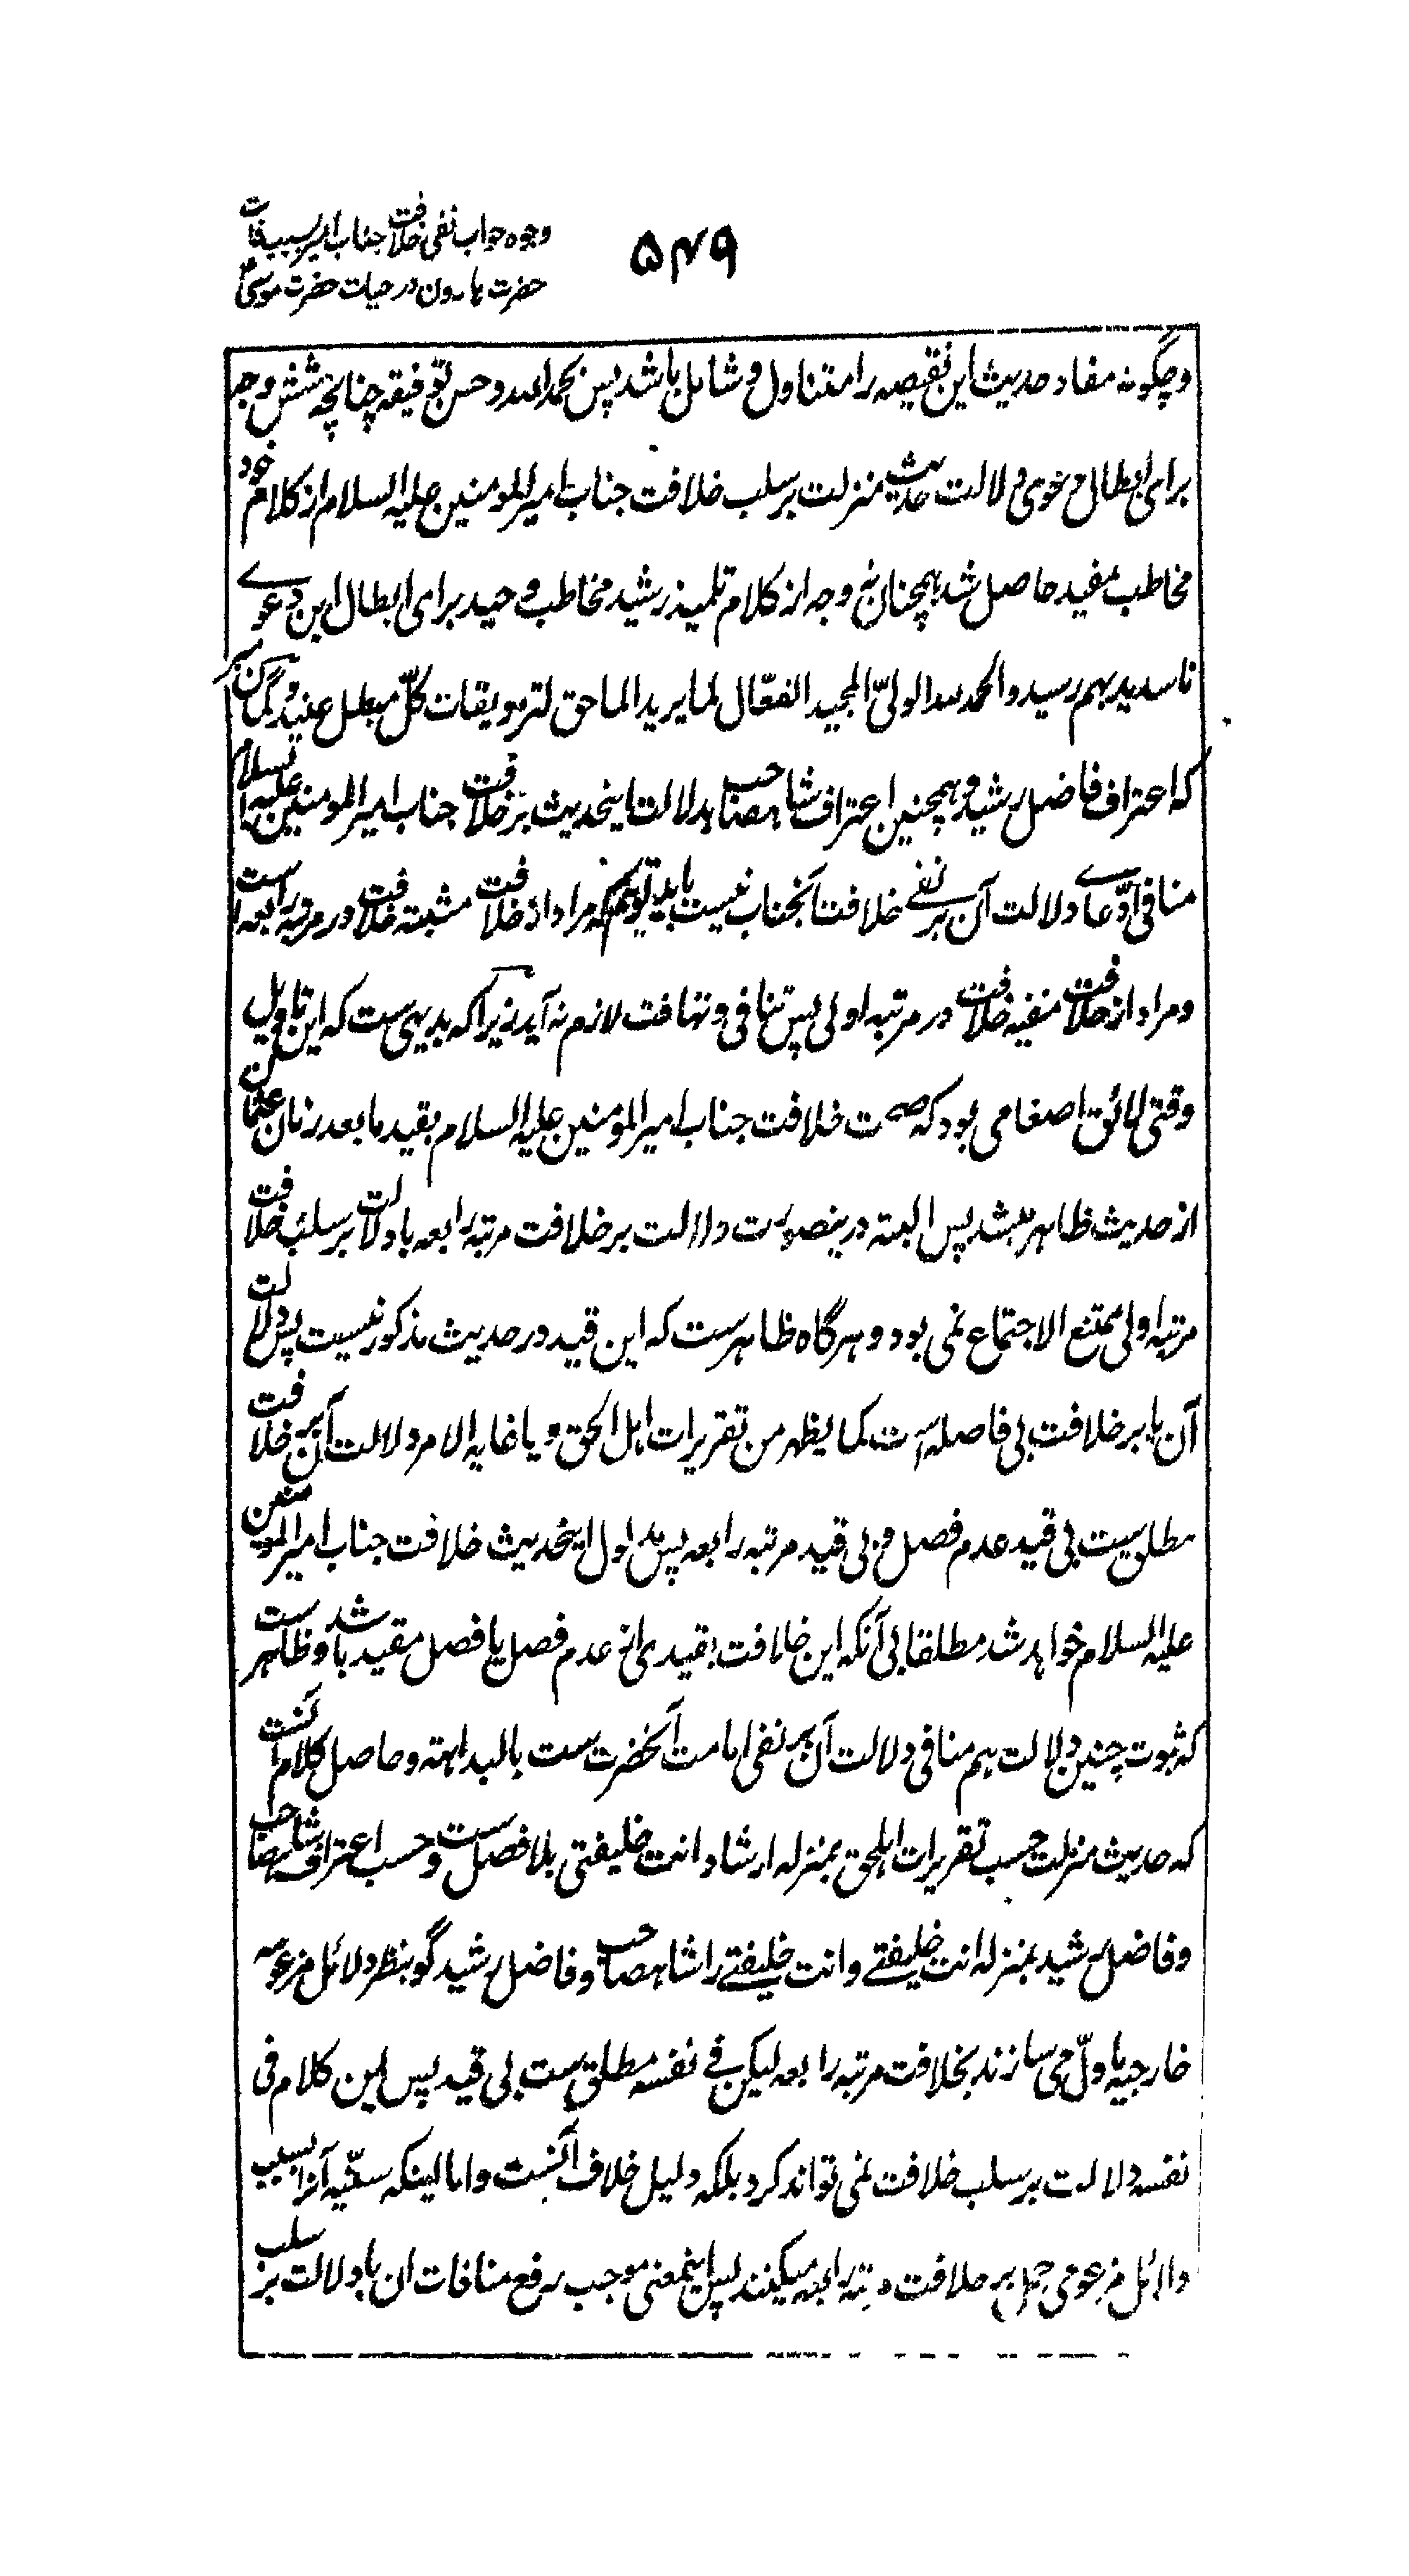 وجوه جواب نفی خلافت جناب امیر بسبب وفات
۵۴۹
حضرت هارون در حیات حضرت موسی
وچگونه مفاد حدیث این نقیصه را متناول و شامل باشد پس بحمد الله و حسن توفیقه چنانچه شش وجه
برای ابطال دعوی دلالت حدیث منزلت بر سلب خلافت جناب امیرالمومنین علیه السلام از کلام خود
مخاطب مفید حاصل شد همچنان نه وجه از کلام تلمیذ رشید مخاطب وحید برای ابطال این دعوے
ناسدید بهم رسید والحمد لله الولیّ المجید الفعّال لما یرید الماحق لتزویقات کلّ مبطل عنید و
که اعتراف فاضل رشید و همچنین اعتراف شاهصاحب بدلالت اینحدیث بر خلافت جناب امیرالمومنین علیه السلام
منافی ادّعاے دلالت آن بر نفے خلافت آنجناب نیست باید توهم که مراد از خلافت مثبته خلافت در مرتبه رابعه است
و مراد از خلافت منفیه خلافت در مرتبه اولی پس تنافی و تهافت لازم نه آید زیرا که بدیهی ست که این تاویل
وقتی لائق اصغا می بود که صحت خلافت جناب امیرالمومنین علیه السلام بقید مابعد زمان عثمان
از حدیث ظاهر میشد پس البته درینصورت دلالت بر خلافت مرتبه رابعه با دلالت بر سلب خلافت
مرتبه اولی ممتنع الاجتماع نمی بود و هرگاه ظاهرست که این قید در حدیث مذکور نیست پس دلالت
آن یا بر خلافت بی فاصله است کما یظهر من تقریرات اهل الحق و یا غایه الامر دلالت آن بر خلافت
مطلق ست بی قید عدم فصل و بی قید مرتبه رابعه پس مدلول اینحدیث خلافت جناب امیرالمومنین
علیه السلام خواهد شد مطلقا بی آنکه این خلافت بقیدی از عدم فصل یا فصل مقید باشد و ظاهرست
که ثبوت چنین دلالت هم منافی دلالت آن بر نفی امامت آنحضرت ست بالبداهته و حاصل کلام آنست
که حدیث منزلت حسب تقریرات اهلحق بمنزله ارشاد انت خلیفتی بلا فصل ست و حسب اعتراف شاهصاحب
و فاضل رشید بمنزله انت خلیفتے و انت خلیفتے را شاهصاحب و فاضل رشید گو بنظر دلائل مزعومه
خارجیه ماوّل می سازند بخلافت مرتبه رابعه لیکن فے نفسه مطلق ست بی قید پس این کلام فی
نفسه دلالت بر سلب خلافت نمی تواند کرد بلکه دلیل خلاف آنست و اما اینکه سنّیه آنرا بسبب
دلائل مزعومی حمل بر خلافت مرتبه رابعه میکنند پس اینمعنی موجب رفع منافات ان با دلالت بر سلب